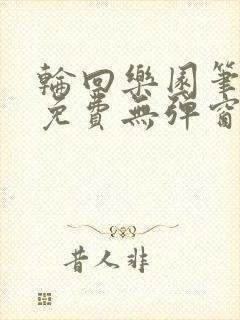 輪回樂園筆
免費無彈窗
昔人非